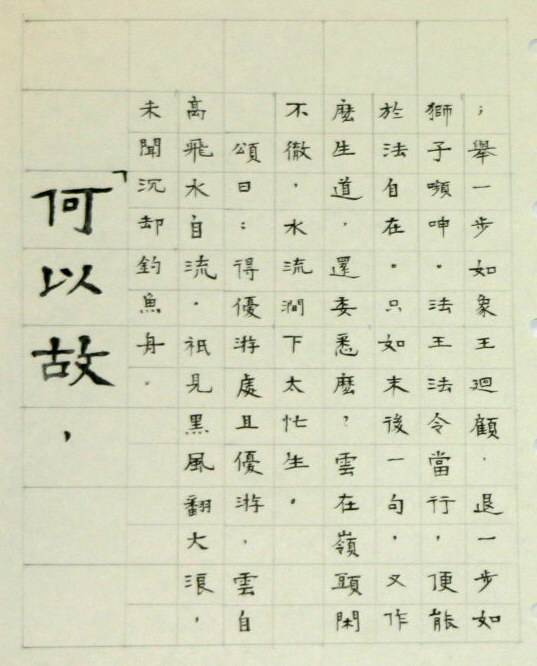 ；舉一步如象王迴顧．退一步如
獅子嚬呻。法王法令當行，便能
於法自在。只如末後一句，又作
麼生道，還委悉麼？雲在嶺頭閑
不徹，水流澗下太忙生。
頌曰：得優游處且優游，雲自
高飛水自流．祇見黑風翻大浪，
未聞沉却釣魚舟．
「何以故，